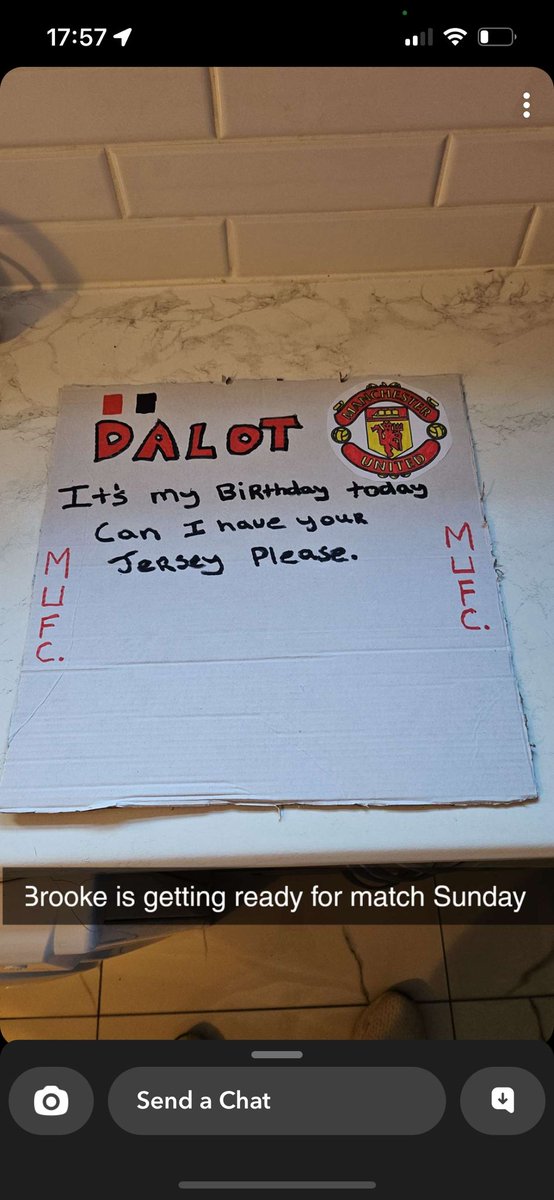 17:57
MANCHESTER
UNITED
DALOT
It's my BiRthday today
Can I have your
Jersey Please.
MUFC.
MUFC.
Brooke is getting ready for match Sunday
Send a Chat